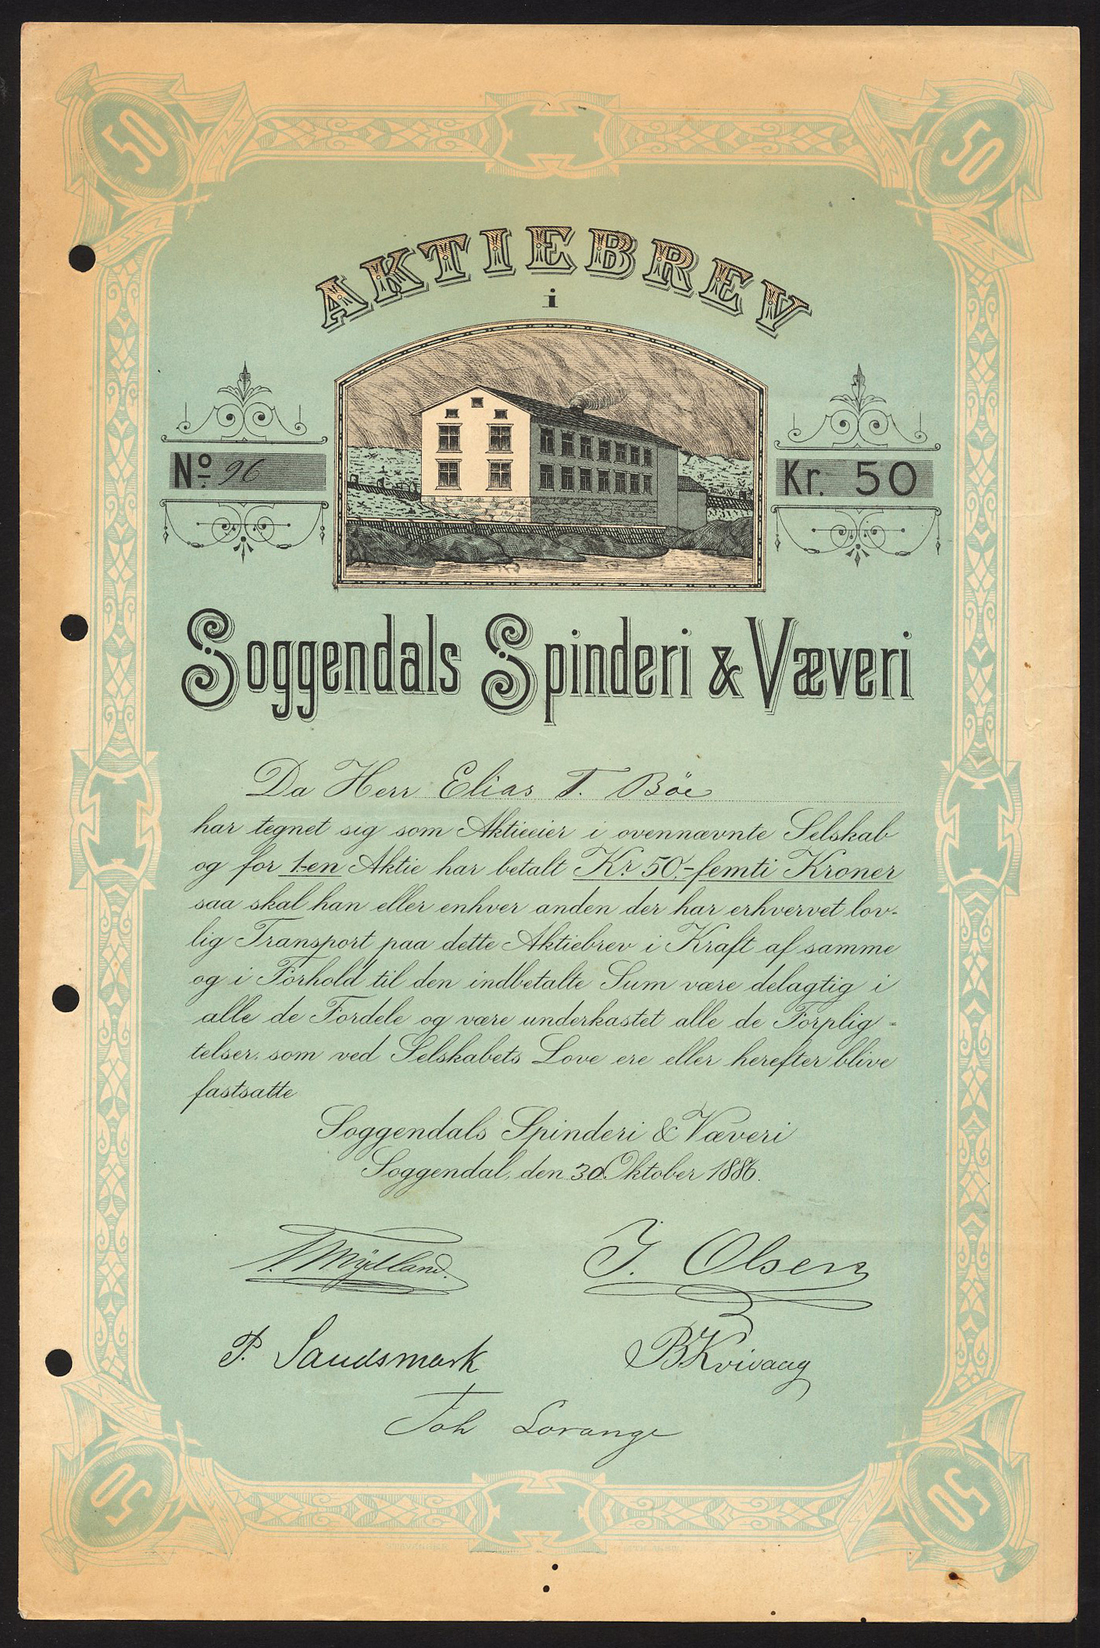 50
50
AKTIEBREV
i
No. 96
Kr. 50
Soggendals Spinderi & Væveri
Da Herr Elias T. Böe
har tegnet sig som Aktieeier i ovennævnte Selskab
og for 1-en Aktie har betalt Kr. 50,- femti Kroner
saa skal han eller enhver anden der har erhvervet lov-
lig Transport paa dette Aktiebrev i Kraft af samme
og i Forhold til den indbetalte Sum være delagtig i
alle de Fordele og være underkastet alle de Forplig-
telser, som ved Selskabets Love ere eller herefter blive
fastsatte
Soggendals Spinderi & Væveri
Soggendal, den 30 Oktober 1886.
Mydland.
J. Olsen
P. Sandsmark
B Kvivaag
Joh Lorange
50
50